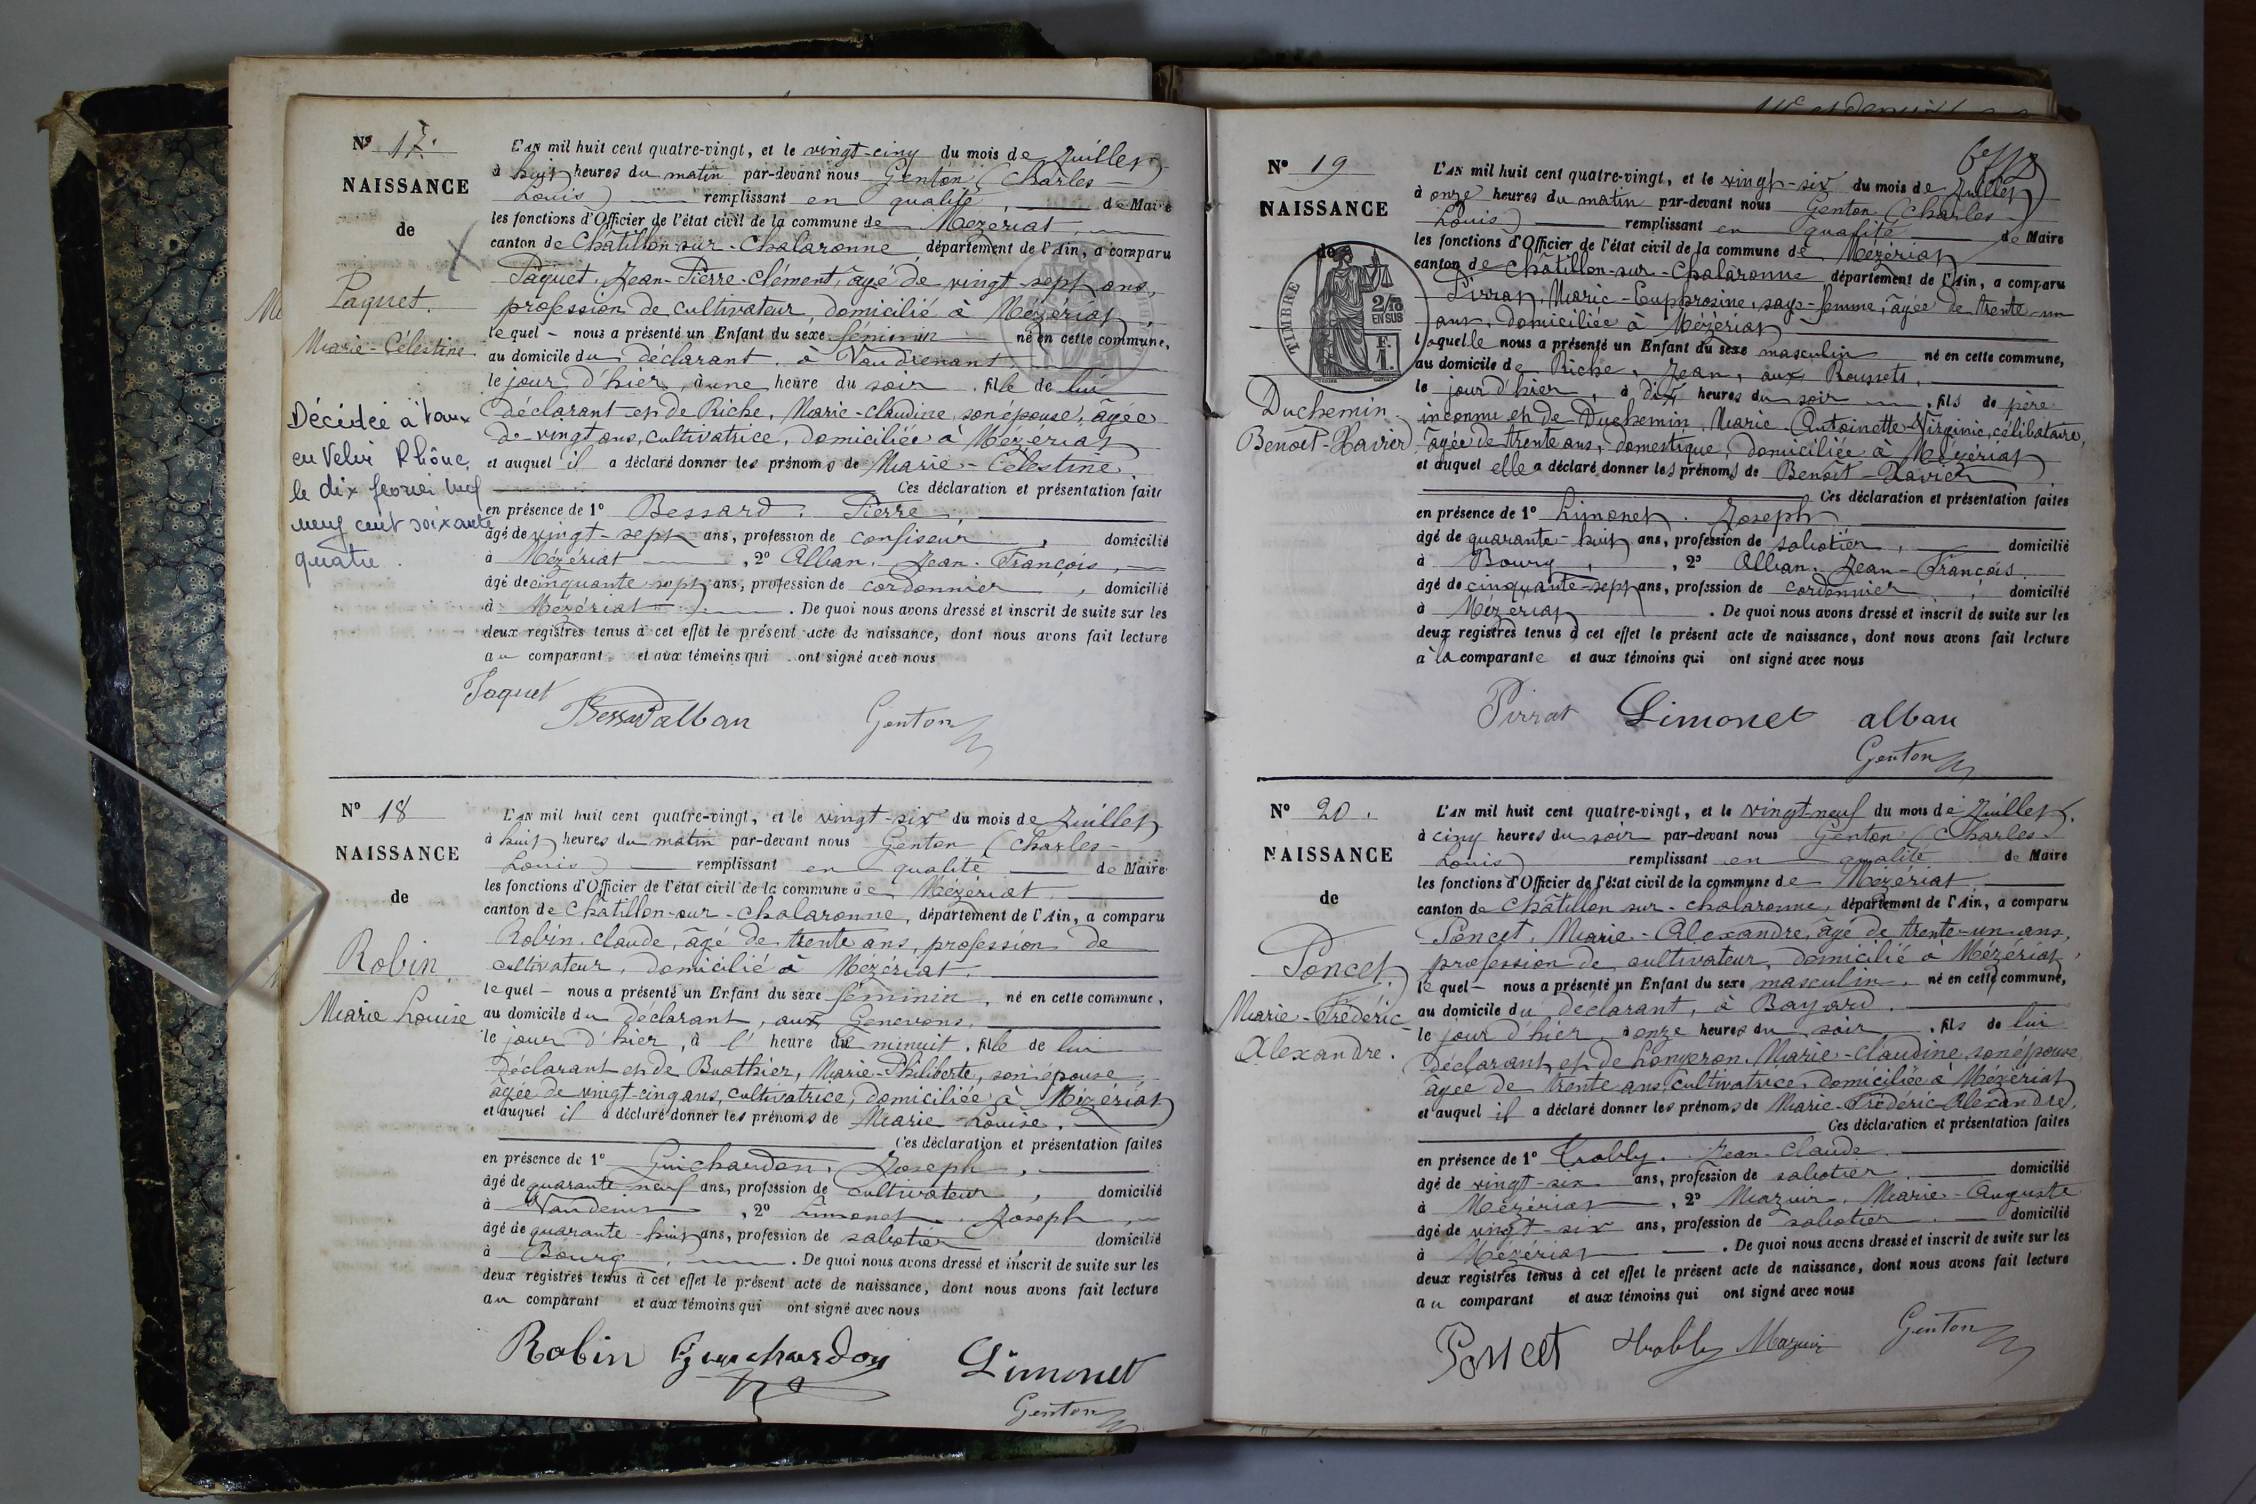 Nº 17.
NAISSANCE
de
Paquet.
Marie-Célestine
Décédée à Vaux
en Velin Rhône,
le dix février mil
neuf cent soixante
quatre.
L'AN mil huit cent quatre-vingt, et le vingt-cinq du mois de Juillet
à huit heures du matin par-devant nous Genton (Charles-
Louis) remplissant en qualité de Maire
les fonctions d'Officier de l'état civil de la commune de Mézériat
canton de Châtillon-sur-Chalaronne, département de l'Ain, a comparu
Paquet, Jean-Pierre-Clément, âgé de vingt-sept ans,
profession de cultivateur, domicilié à Mézériat
lequel – nous a présenté un Enfant du sexe féminin né en cette commune,
au domicile du déclarant, à Vaudrenant,
le jour d'hier, à une heure du soir, fille de lui
déclarant et de Riche, Marie-Claudine, son épouse, âgée
de vingt ans, cultivatrice, domiciliée à Mézériat
et auquel il a déclaré donner les prénoms de Marie-Célestine
Ces déclaration et présentation faites
en présence de 1º Bessard, Pierre,
âgé de vingt-sept ans, profession de confiseur, domicilié
à Mézériat, 2º Alban, Jean-François,
âgé de cinquante-sept ans, profession de cordonnier, domicilié
à Mézériat. De quoi nous avons dressé et inscrit de suite sur les
deux registres tenus à cet effet le présent acte de naissance, dont nous avons fait lecture
au comparant et aux témoins qui ont signé avec nous
Paquet
Bessard alban Genton
Nº 18
NAISSANCE
de
Robin
Marie Louise
L'AN mil huit cent quatre-vingt, et le vingt-six du mois de Juillet
à huit heures du matin par-devant nous Genton (Charles-
Louis) remplissant en qualité de Maire
les fonctions d'Officier de l'état civil de la commune de Mézériat
canton de Châtillon-sur-Chalaronne, département de l'Ain, a comparu
Robin, Claude, âgé de trente ans, profession de
cultivateur, domicilié à Mézériat,
lequel – nous a présenté un Enfant du sexe féminin, né en cette commune,
au domicile du déclarant, aux Genevons,
le jour d'hier, à l'heure de minuit, fille de lui
déclarant et de Buathier, Marie-Philiberte, son épouse
âgée de vingt-cinq ans, cultivatrice, domiciliée à Mézériat
et auquel il a déclaré donner les prénoms de Marie-Louise.
Ces déclaration et présentation faites
en présence de 1º Guichardon, Joseph,
âgé de quarante-neuf ans, profession de cultivateur, domicilié
à Vandeins, 2º Limonet, Joseph,
âgé de quarante-huit ans, profession de sabotier domicilié
à Bourg. De quoi nous avons dressé et inscrit de suite sur les
deux registres tenus à cet effet le présent acte de naissance, dont nous avons fait lecture
au comparant et aux témoins qui ont signé avec nous
Robin Guichardon Limonet
Genton
Nº 19
NAISSANCE
de
TIMBRE
2/10
EN SUS
F.
1.
Duchemin
Benoît-Xavier
L'AN mil huit cent quatre-vingt, et le vingt-six du mois de Juillet
à onze heures du matin par-devant nous Genton (Charles-
Louis) remplissant en qualité de Maire
les fonctions d'Officier de l'état civil de la commune de Mézériat
canton de Châtillon-sur-Chalaronne département de l'Ain, a comparu
Pirrat, Marie-Euphrosine, sage-femme, âgée de trente-un
ans, domiciliée à Mézériat
laquelle nous a présenté un Enfant du sexe masculin né en cette commune,
au domicile de Riche, Jean, aux Roussets,
le jour d'hier, à dix heures du soir, fils de père
inconnu et de Duchemin, Marie-Antoinette-Virginie, célibataire,
âgée de trente ans, domestique, domiciliée à Mézériat
et auquel elle a déclaré donner les prénoms de Benoît-Xavier
Ces déclaration et présentation faites
en présence de 1º Limonet, Joseph
âgé de quarante-huit ans, profession de sabotier, domicilié
à Bourg, 2º Alban, Jean-François
âgé de cinquante-sept ans, profession de cordonnier, domicilié
à Mézériat. De quoi nous avons dressé et inscrit de suite sur les
deux registres tenus à cet effet le présent acte de naissance, dont nous avons fait lecture
à la comparante et aux témoins qui ont signé avec nous
Pirrat Limonet alban
Genton
Nº 20.
NAISSANCE
de
Poncet
Marie-Frédéric-
Alexandre.
L'AN mil huit cent quatre-vingt, et le vingt-neuf du mois de Juillet,
à cinq heures du soir par-devant nous Genton (Charles-
Louis) remplissant en qualité de Maire
les fonctions d'Officier de l'état civil de la commune de Mézériat
canton de Châtillon-sur-Chalaronne, département de l'Ain, a comparu
Poncet, Marie-Alexandre, âgé de trente-un ans,
profession de cultivateur, domicilié à Mézériat,
lequel – nous a présenté un Enfant du sexe masculin, né en cette commune,
au domicile du déclarant, à Bayard.
le jour d'hier à onze heures du soir, fils de lui
déclarant et de Marie-Claudine, son épouse
âgée de trente ans, cultivatrice, domiciliée à Mézériat
et auquel il a déclaré donner les prénoms de Marie-Frédéric-Alexandre,
Ces déclaration et présentation faites
en présence de 1º Trably, Jean-Claude
âgé de vingt-six ans, profession de sabotier, domicilié
à Mézériat, 2º Mazuir, Marie-Auguste
âgé de vingt-six ans, profession de sabotier, domicilié
à Mézériat. De quoi nous avons dressé et inscrit de suite sur les
deux registres tenus à cet effet le présent acte de naissance, dont nous avons fait lecture
au comparant et aux témoins qui ont signé avec nous
Poncet Trably Mazuir Genton